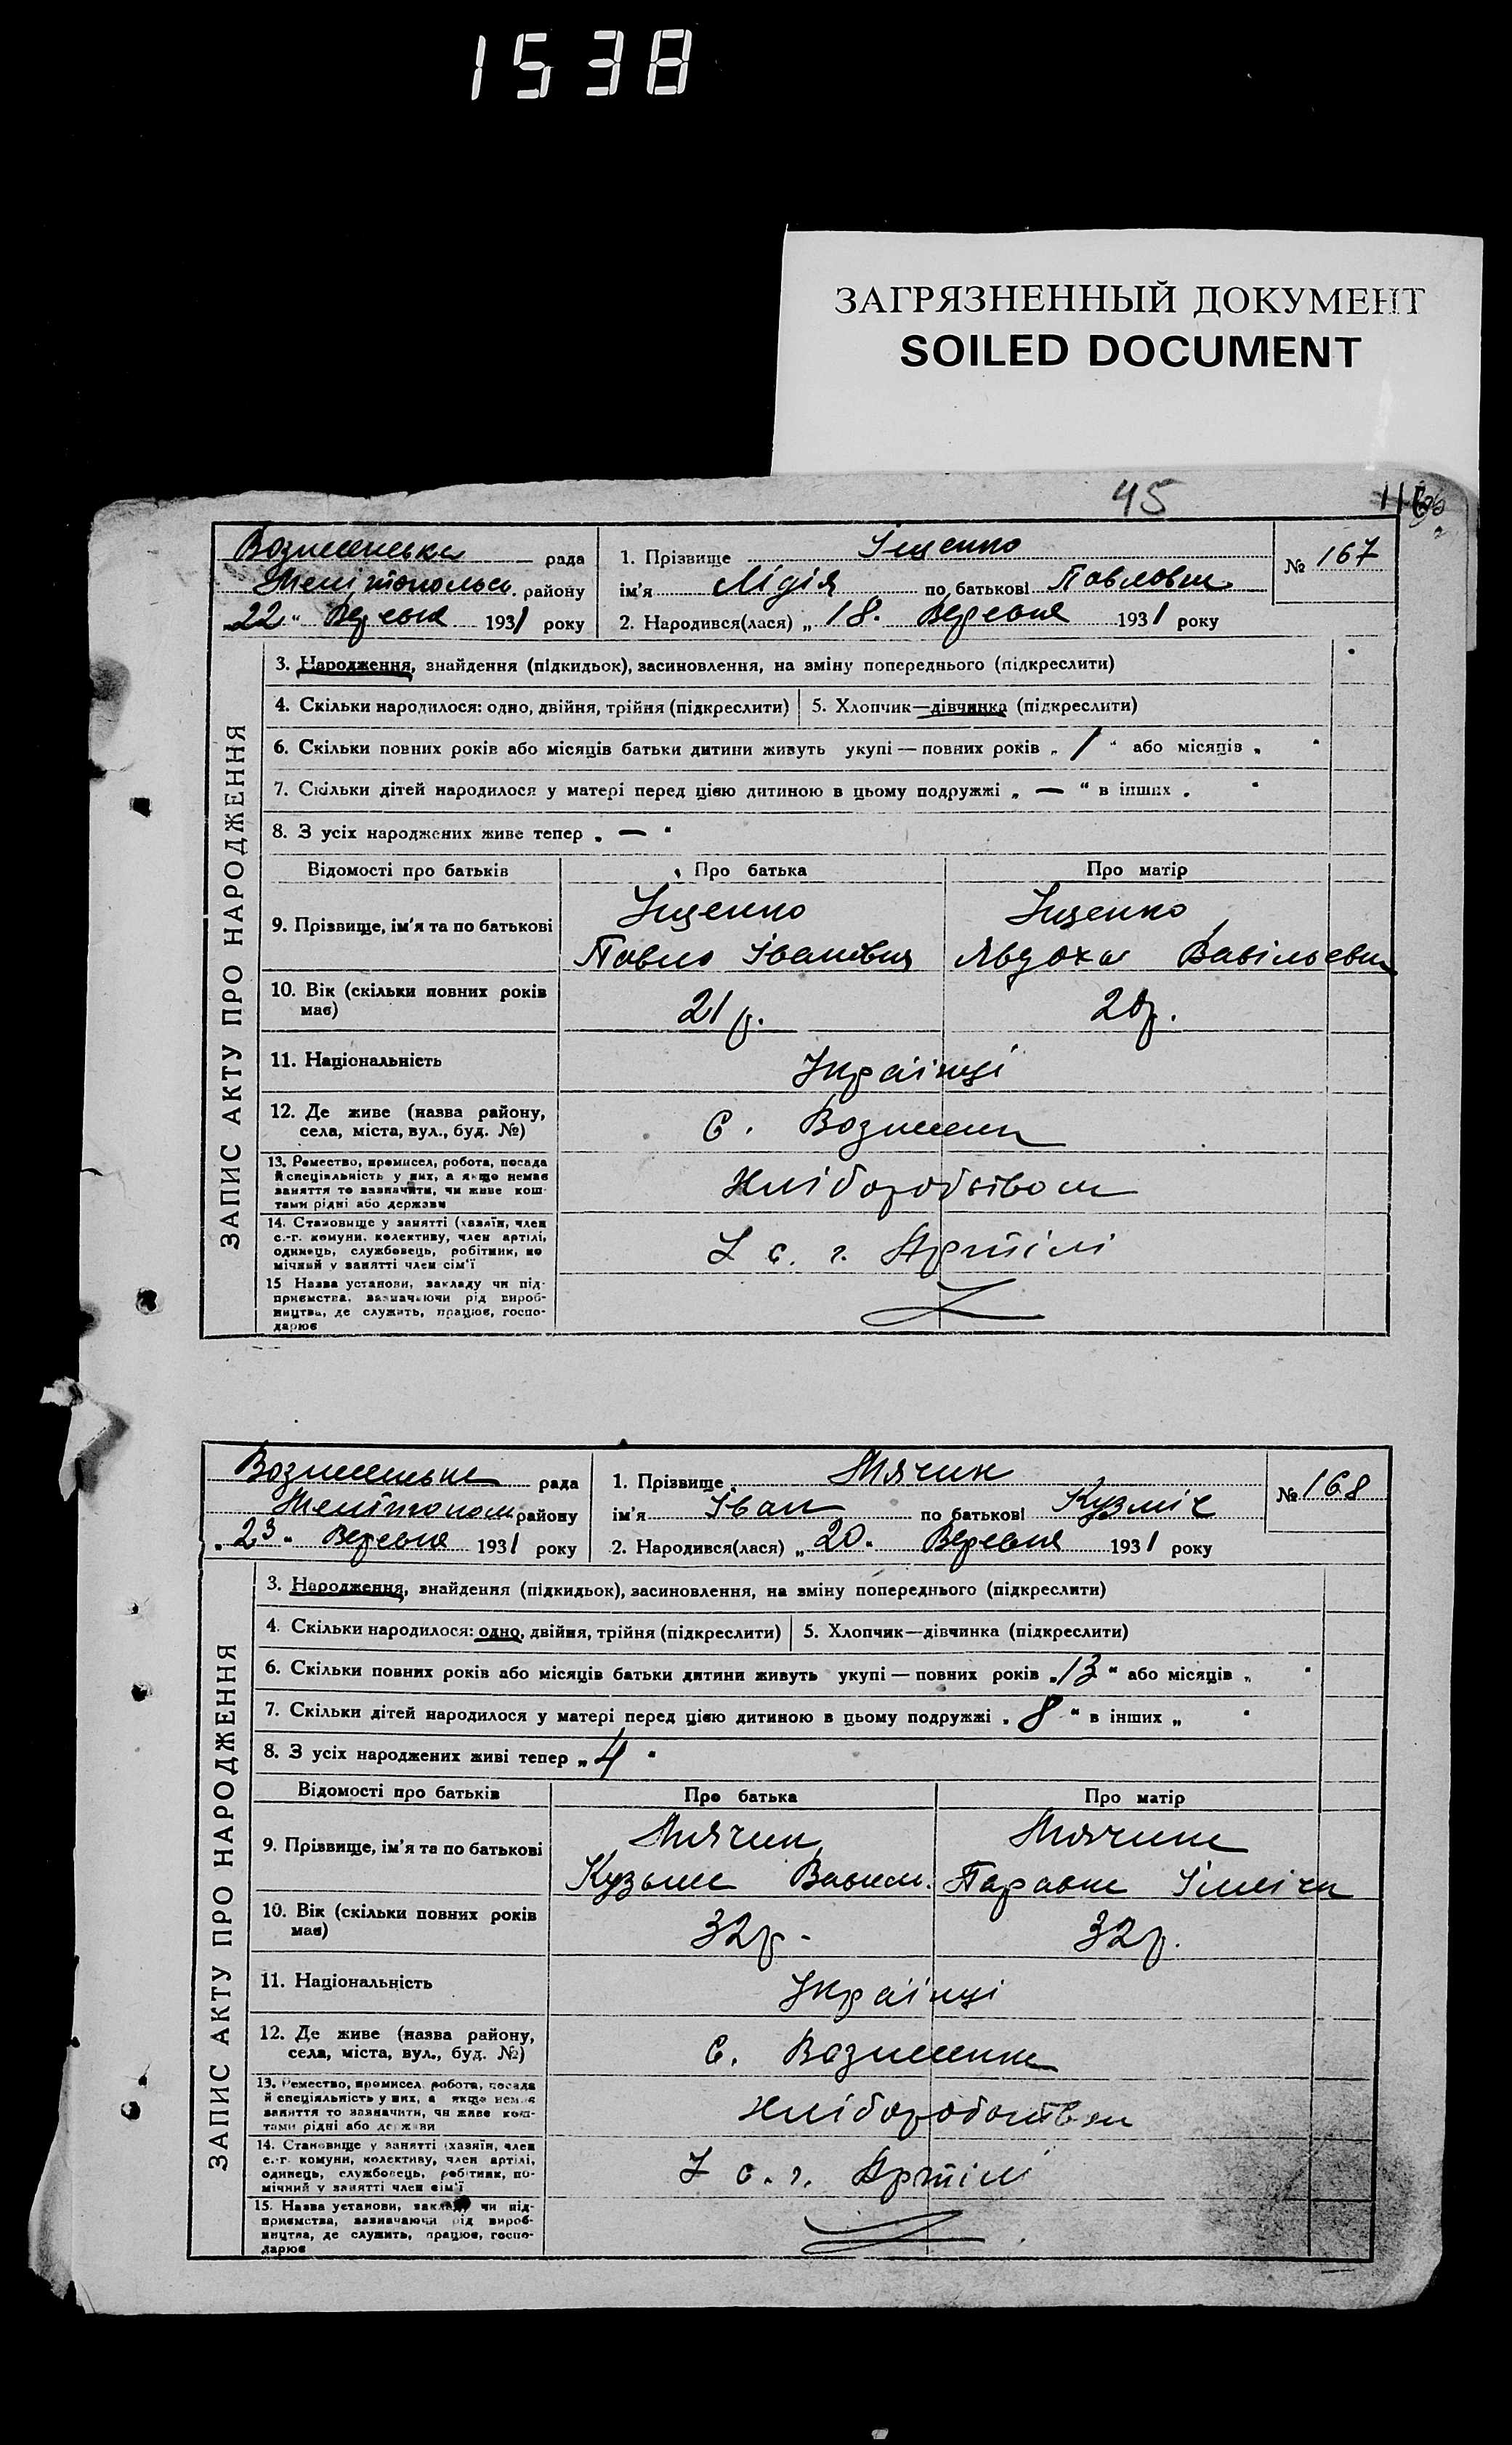 1538
ЗАГРЯЗНЕННЫЙ ДОКУМЕНТ
SOILED DOCUMENT
45
Вознесенська рада
1. Прізвище Іщенко
№ 167
Мелітопольсь. району
ім'я Лідія по батькові Павловна
„22“ Вересня 1931 року
2. Народився(лася) „18“ Вересня 1931 року
ЗАПИС АКТУ ПРО НАРОДЖЕННЯ
3. Народження, знайдення (підкидьок), засиновлення, на зміну попереднього (підкреслити)
4. Скільки народилося: одно, двійня, трійня (підкреслити) 5. Хлопчик—дівчинка (підкреслити)
6. Скільки повних років або місяців батьки дитини живуть укупі — повних років „1“ або місяців „ “
7. Скільки дітей народилося у матері перед цією дитиною в цьому подружжі „—“ в інших „ “
8. З усіх народжених живе тепер „—“
Відомості про батьків Про батька Про матір
9. Прізвище, ім'я та по батькові
Іщенко Іщенко
Павло Івановия Явдоха
10. Вік (скільки повних років
має)
21 р. 20 р.
11. Національність
Українці
12. Де живе (назва району,
села, міста, вул., буд. №)
с. Вознесенка
13. Ремество, промисел, робота, посада
й спеціяльність у них, а якщо немає
заняття то зазначити, чи живе кош-
тами рідні або держави
Хліборобством
14. Становище у занятті (хазяїн, член
с.-г. комуни, колективу, член артілі,
одинець, службовець, робітник, по
мічний у занятті член сім'ї
с. г. Артілі
15 Назва установи, закладу чи під-
приємства, вазначаючи рід вироб-
ництва, де служить, працює, госпо-
дарює
Вознесенська рада
1. Прізвище Мячин
№ 168
Мелітопол району
ім'я Іван по батькові Кузміч
„23“ Вересня 1931 року
2. Народився(лася) „20“ Вересня 1931 року
ЗАПИС АКТУ ПРО НАРОДЖЕННЯ
3. Народження, знайдення (підкидьок), засиновлення, на зміну попереднього (підкреслити)
4. Скільки народилося: одно, двійня, трійня (підкреслити) 5. Хлопчик—дівчинка (підкреслити)
6. Скільки повних років або місяців батьки дитини живуть укупі — повних років „13“ або місяців „ “
7. Скільки дітей народилося у матері перед цією дитиною в цьому подружжі „8“ в інших „ “
8. З усіх народжених живі тепер „4“
Відомості про батьків Про батька Про матір
9. Прізвище, ім'я та по батькові
Мячин Мячина
Кузьма Параска
10. Вік (скільки повних років
має)
32 р. 32 р.
11. Національність
Українці
12. Де живе (назва району,
села, міста, вул., буд. №)
с. Вознесенка
13. Ремество, промисел робота, посада
й спеціяльність у них, а якщо немає
заняття то зазначити, чи живе кош-
тами рідні або держави
Хліборобством
14. Становище у занятті (хазяїн, член
с.-г. комуни, колективу, член артілі,
одинець, службовець, робітник, по-
мічний у занятті член сім'ї
с. г. Артілі
15. Назва установи, закладу чи під-
приємства, вазначаючи рід вироб-
ництва, де служить, працює, госпо-
дарює